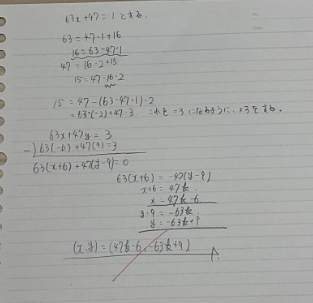 63x+47=1とする.
63=47・1+16
16=63-47・1
47=16・2+15
15=47-16・2
15=47-(63-47・1)・2
=63・(-2)+47・3
63x+47y=3
-)63(-6)+47(9)=3
63(x+6)+47(y-9)=0
63(x+6)=-47(y-9)
x+6=47k
x=47k-6
y-9=-63k
y=-63k+9
(x,y)=(47k-6,-63k+9)